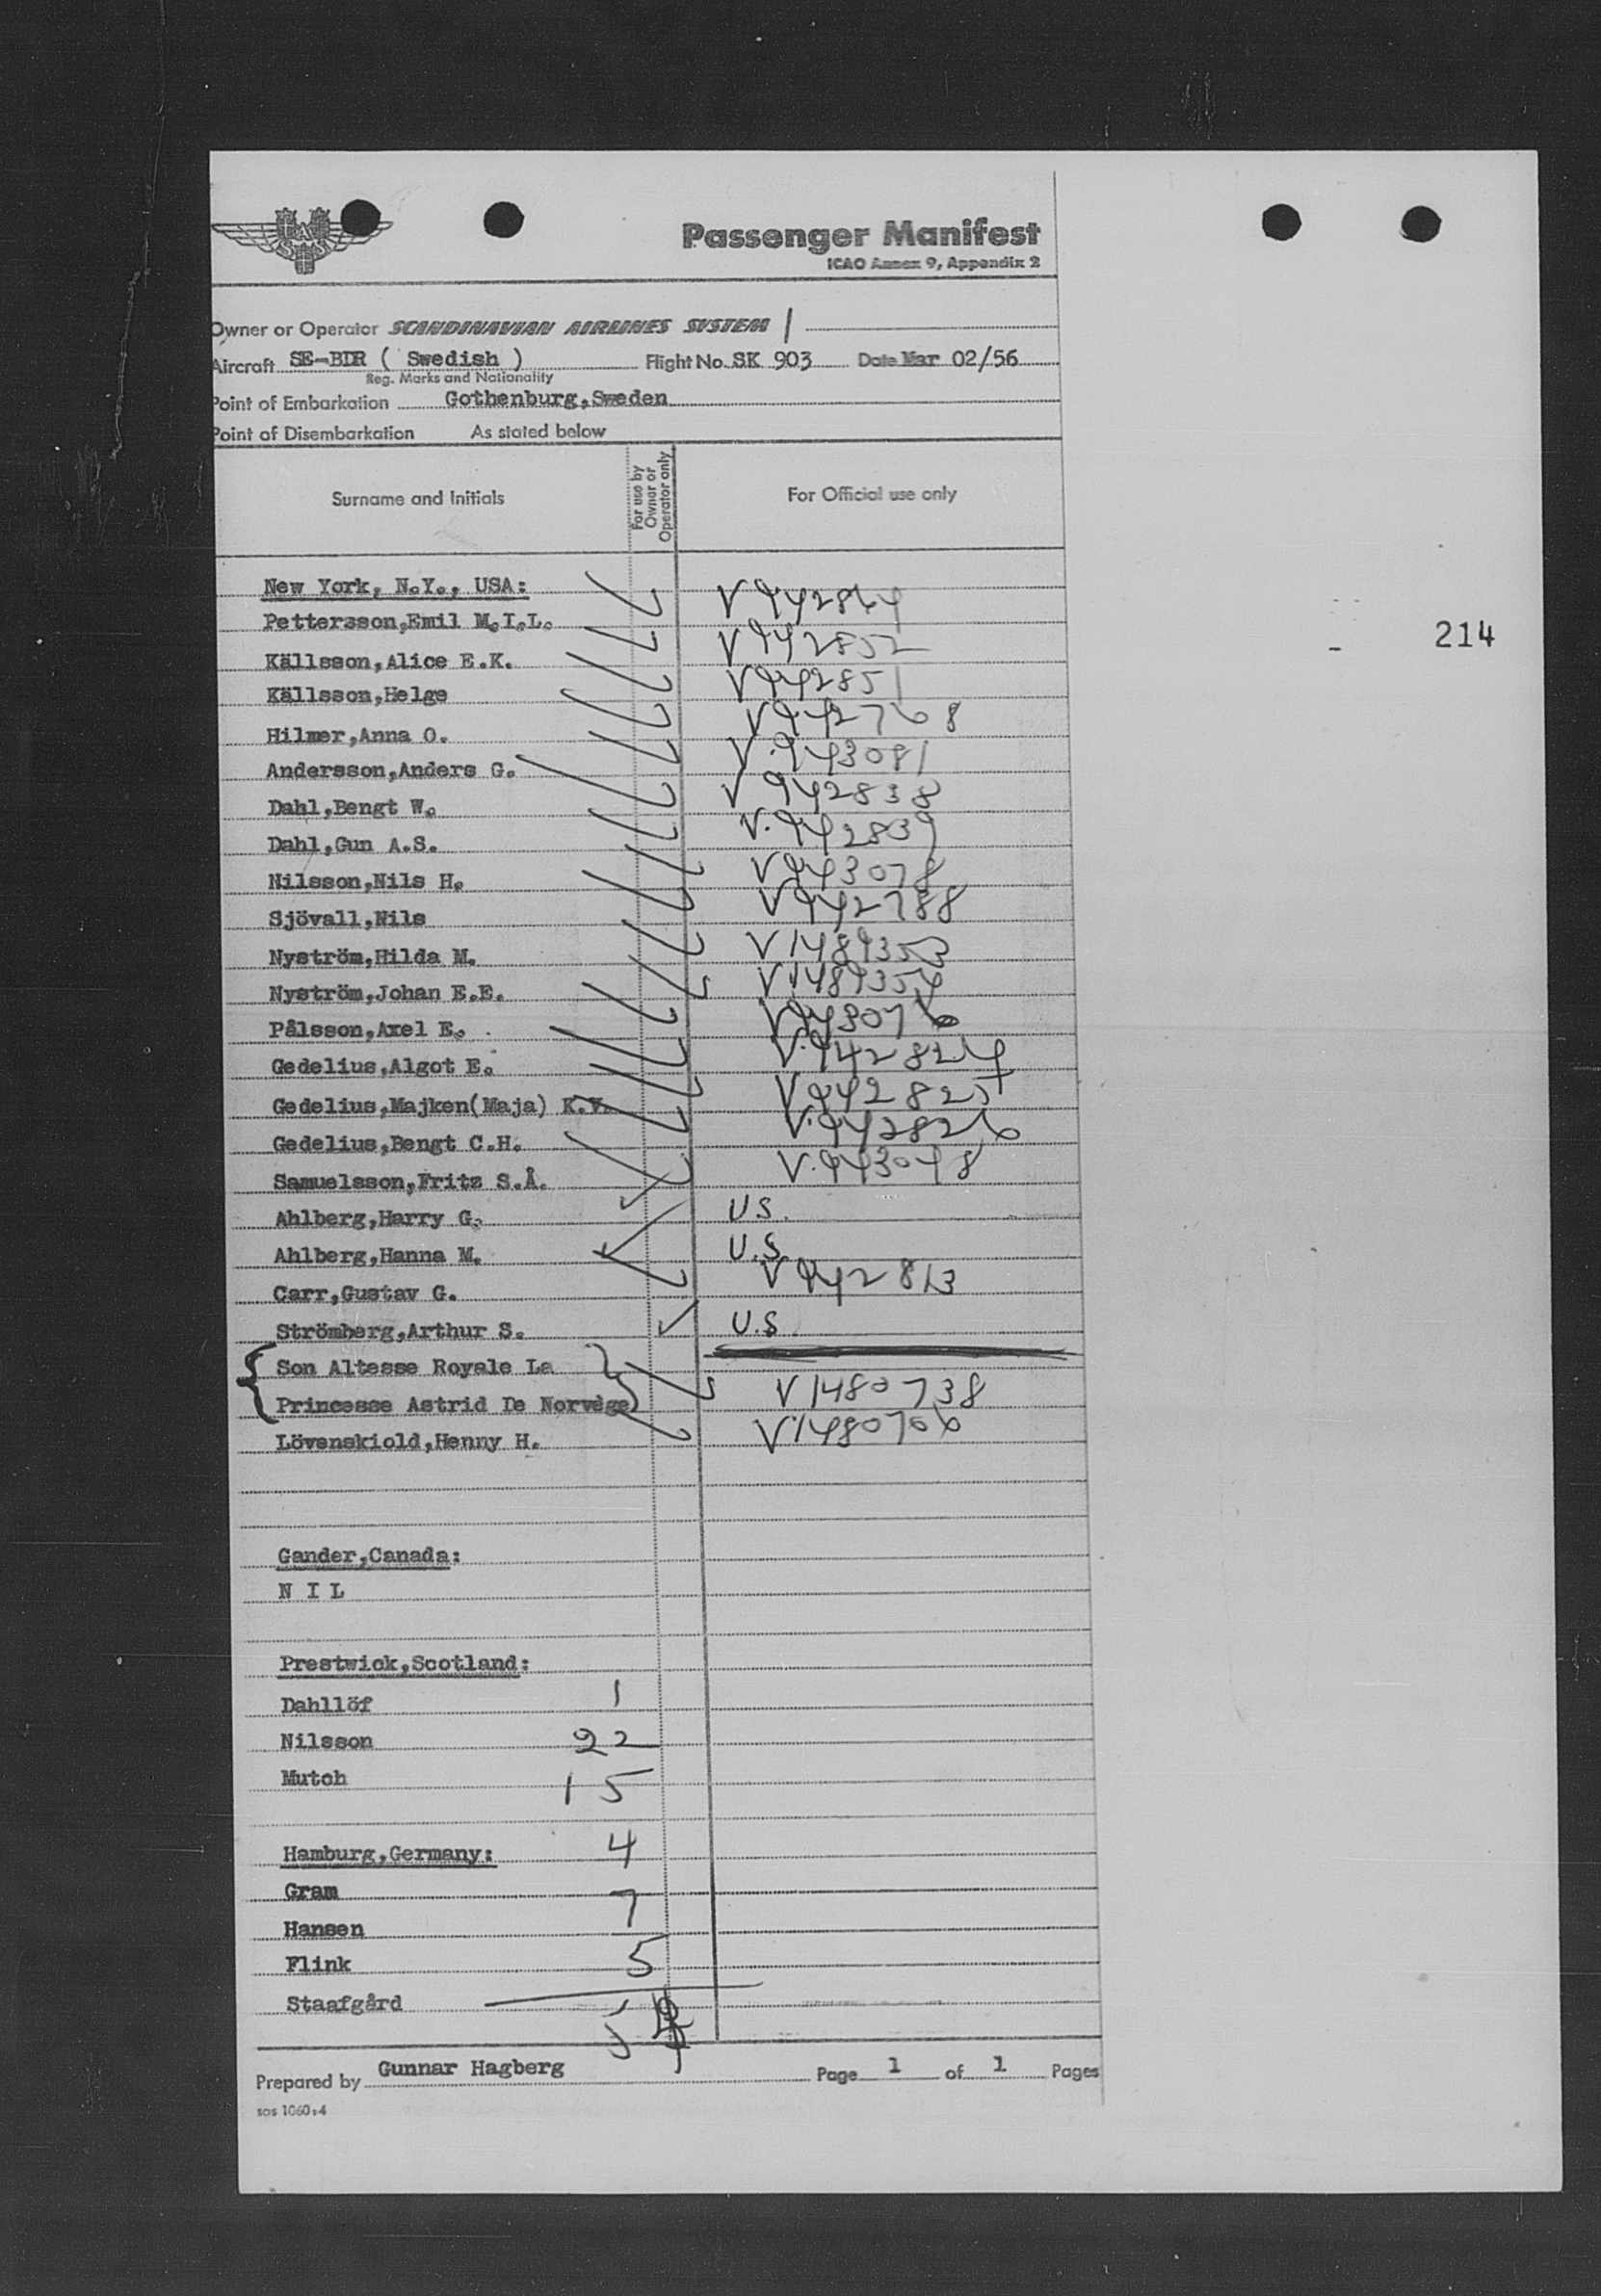 SAS
Passenger Manifest
ICAO Annex 9, Appendix 2
Owner or Operator SCANDINAVIAN AIRLINES SYSTEM
Aircraft SE-BDR ( Swedish ) Flight No. SK 903 Date Mar 02/56
Reg. Marks and Nationality
Point of Embarkation Gothenburg,Sweden
Point of Disembarkation As stated below
Surname and Initials For use by Owner or Operator only For Official use only
New York, N.Y., USA:
214
Pettersson,Emil M.I.L. V942864
Källsson,Alice E.K. V942852
Källsson,Helge V942851
Hilmer,Anna O. V942768
Andersson,Anders G. V.943081
Dahl,Bengt W. V942838
Dahl,Gun A.S. V.942839
Nilsson,Nils H. V943078
Sjövall,Nils V942788
Nyström,Hilda M. V1489353
Nyström,Johan E.E. V1489354
Pålsson,Axel E. V943076
Gedelius,Algot E. V.942824
Gedelius,Majken(Maja) K.V. V942825
Gedelius,Bengt C.H. V.942826
Samuelsson,Fritz S.Å. V.943048
Ahlberg,Harry G. U.S.
Ahlberg,Hanna M. U.S.
Carr,Gustav G. V942813
Strömberg,Arthur S. U.S
Son Altesse Royale La
Princesse Astrid De Norvège V1480738
Lövenskiold,Henny H. V1480706
Gander,Canada:
N I L
Prestwick,Scotland:
Dahllöf 1
Nilsson 22
Mutch 15
Hamburg,Germany: 4
Gram 7
Hansen
Flink 5
Staafgård
5
Prepared by Gunnar Hagberg Page 1 of 1 Pages
sas 1060:4